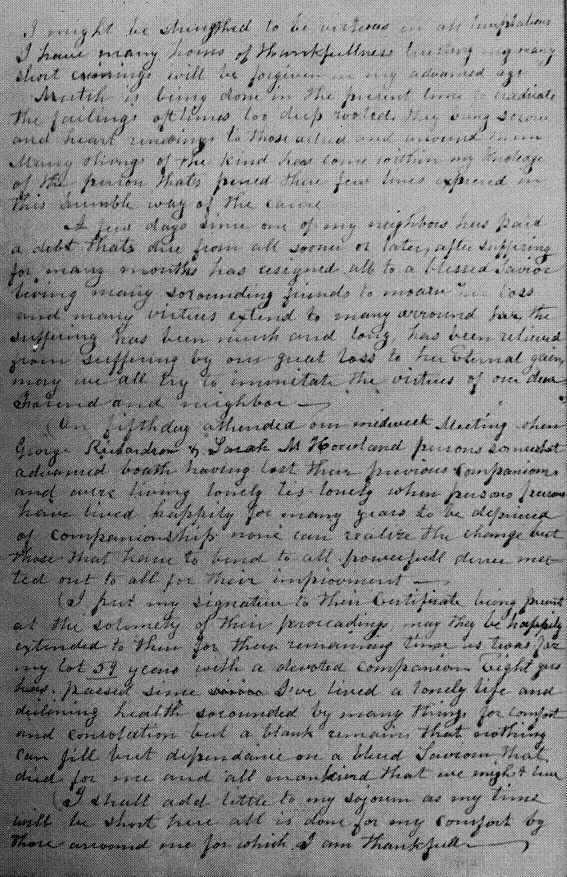 I might be strengthed to be virteous in all temptations
I have many hours of thankfullness trusting my many
short comings will be forgiven in my advanced age
Mutch is being done in the present time to eradicate
the failings oftimes too deep rooted. they bring sorow
and heart rendings to those allied and around them
Many things of the kind has come within my knolege
of the person thats pened these few lines expresed in
this humble way of the cause
A few days since one of my neighbors has paid
a debt thats due from all sooner or later, after suffering
for many months has resigned all to a blessed Savior
leving many sorounding friends to moarn her loss
and many virtues extend to many arround her, the
suffering has been much and long, has been relieved
from suffering by our great loss to her eternal gain,
may we all try to immitate the virtues of our dear
Friend and neighbor
On fifthday attended our midweek Meeting when
George Richardson & Sarah M Howland persons somewhat
advanced boath having lost their previous companions
and were living lonely tis lonely when persons
have lived happily for many years to be deprived
of companionship none can realize the change but
those that have to bend to all powerfull decree met-
ted out to all for their improvement
I put my signature to their Certificate being present
at the solemety of their proceedings, may they be happily
extended to them for their remaining time as twas for
my lot 59 years with a devoted companion. Eight years
has passed since I've lived a lonely life and
declining health sorounded by many things for comfort
and consolation but a blank remains that nothing
can fill but dependance on a blesed Saviour that
died for me and all mankind that we might live
I shall add little to my sojourn as my time
will be short here all is done for my comfort by
those arround me for which I am thankfull